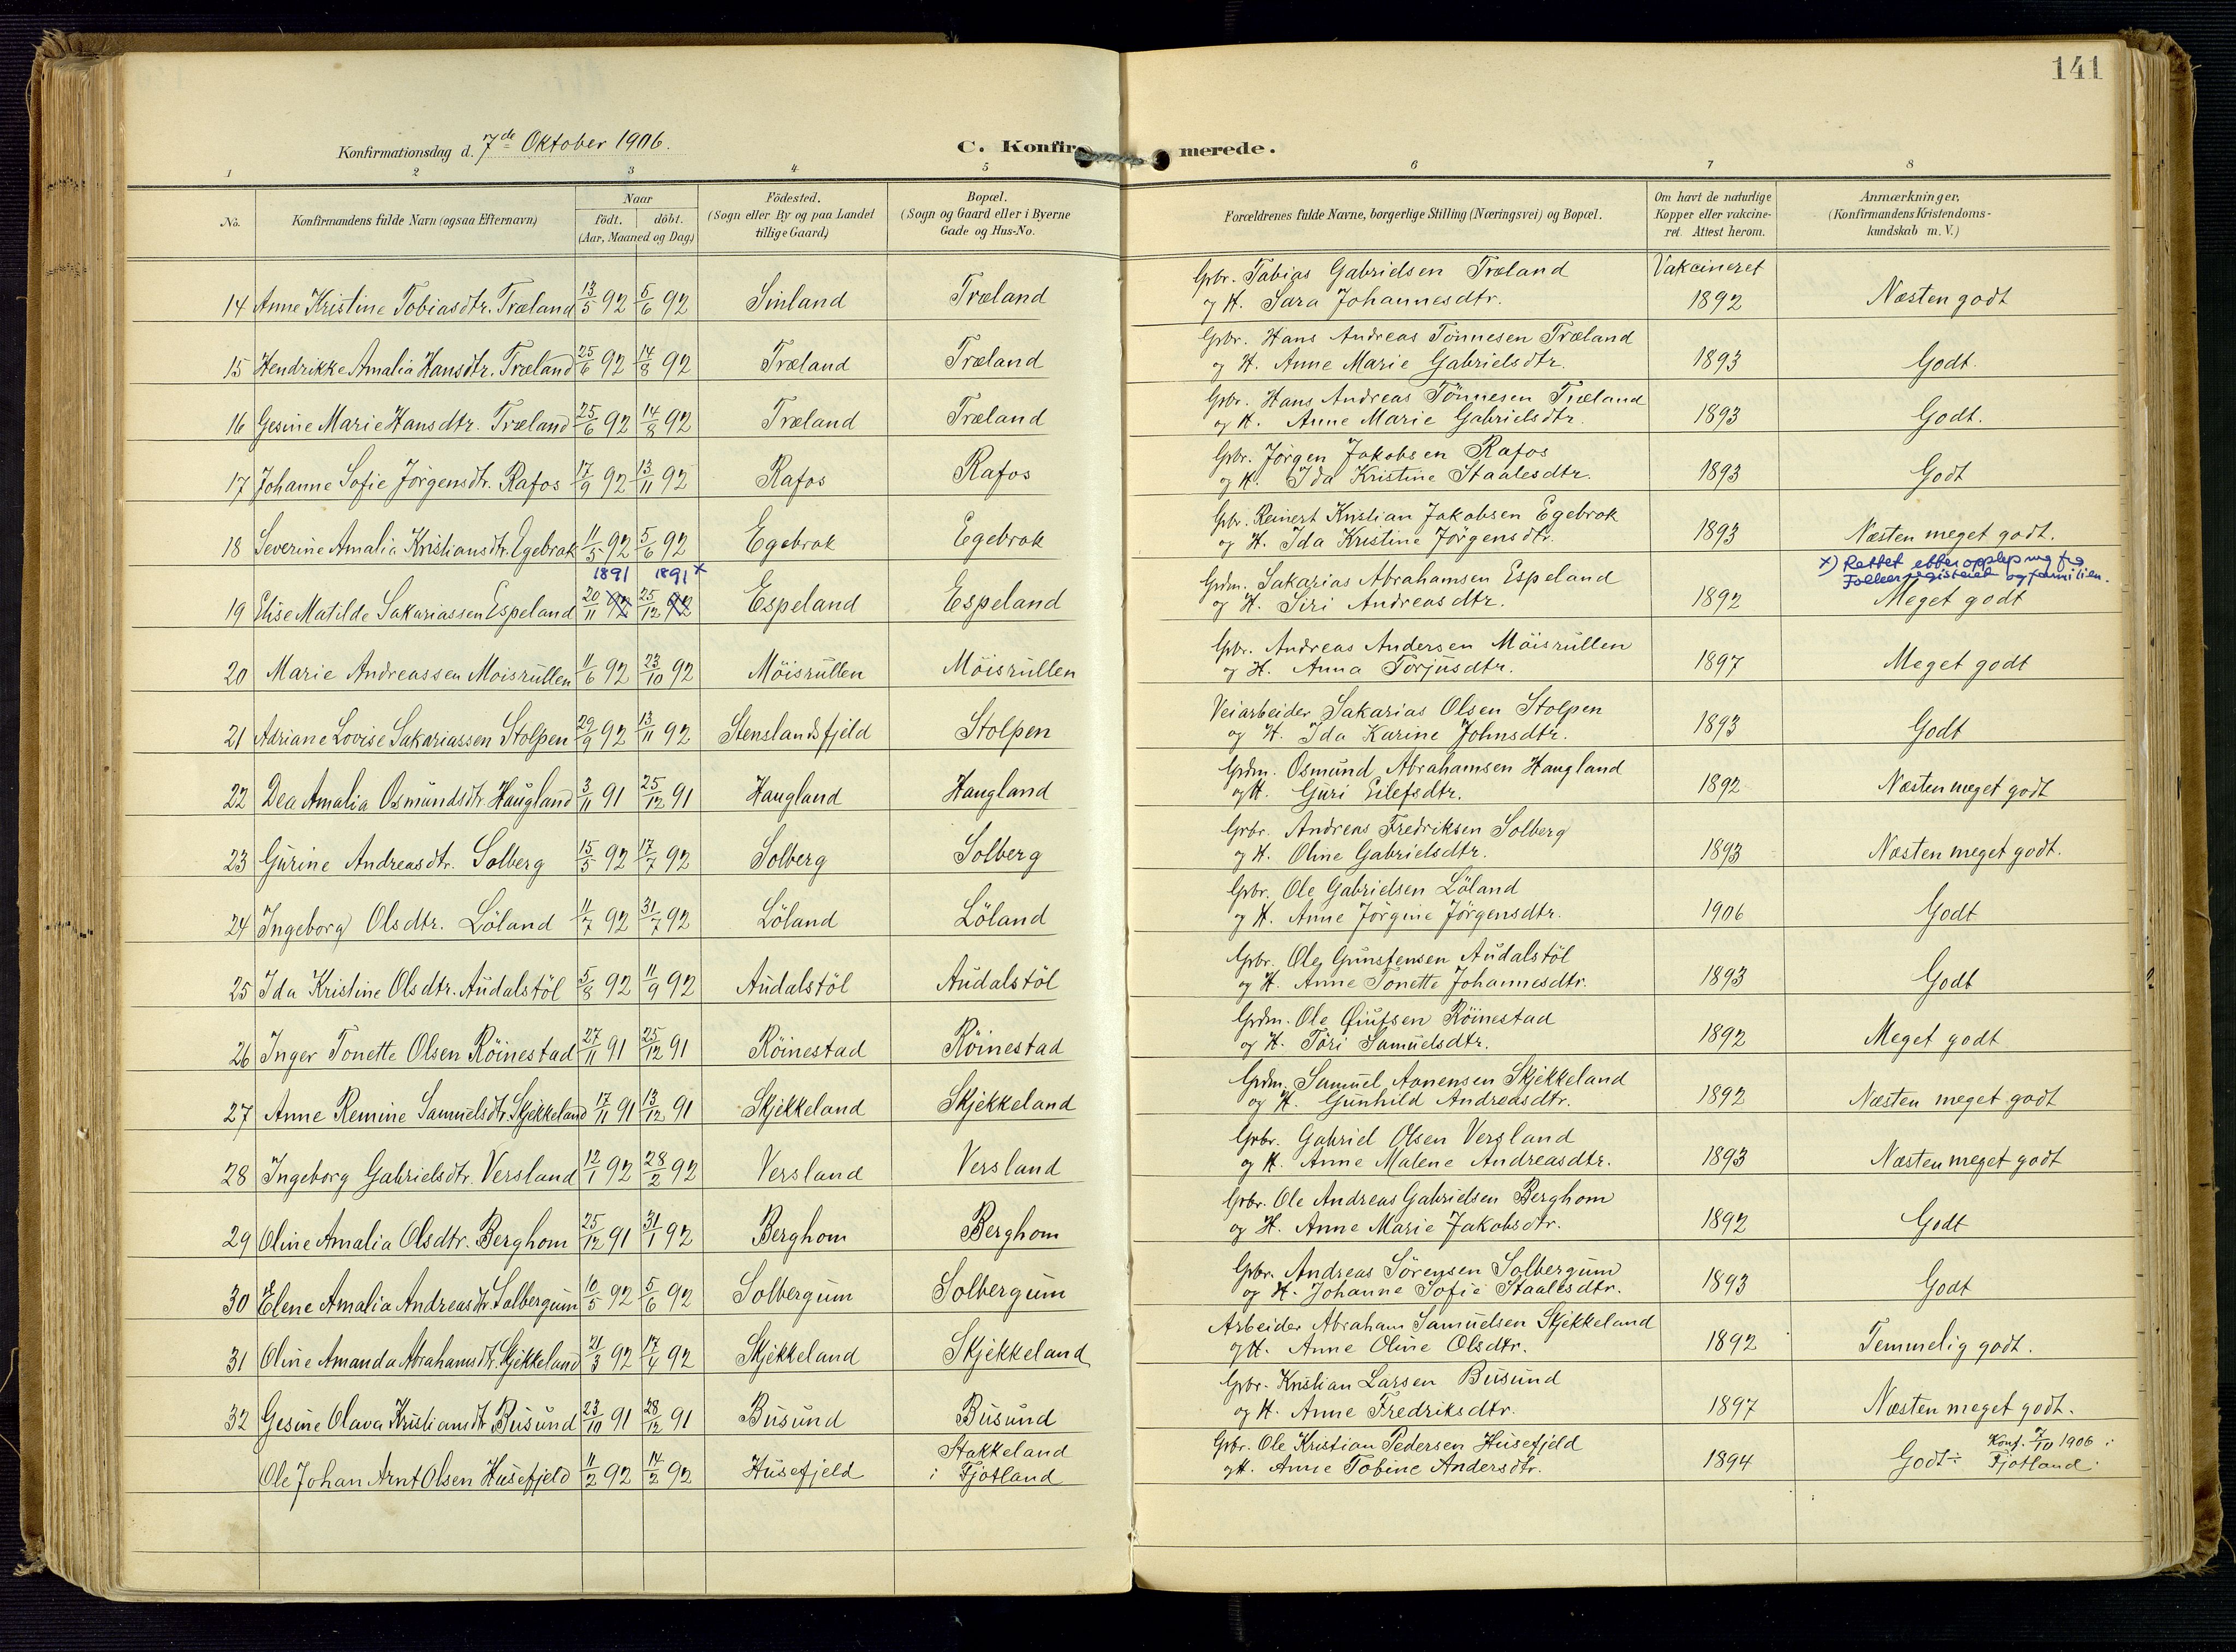 141
Konfirmationsdag d. 7de Oktober 1906.
C. Konfirmerede.
1 2 3 4 5 6 7 8
No. Konfirmandens fulde Navn (ogsaa Efternavn) Naar födt. döbt. (Aar, Maaned og Dag) Födested. (Sogn eller By og paa Landet tillige Gaard) Bopæl. (Sogn og Gaard eller i Byerne Gade og Hus-No. Forældrenes fulde Navne, borgerlige Stilling (Næringsvei) og Bopæl. Om havt de naturlige Kopper eller vakcineret. Attest herom. Anmærkninger, (Konfirmandens Kristendomskundskab m. V.)
Gbr. Tobias Gabrielsen Træland Vakcineret
14 Anne Kristine Tobiasdtr. Træland 13/5 92 5/6 92 Sinland Træland og H. Sara Johannesdtr. 1892 Næsten godt
Gbr. Hans Andreas Tönnesen Træland
15 Hendrikke Amalia Hansdtr. Træland 25/6 92 14/8 92 Træland Træland og H. Anne Marie Gabrielsdtr. 1893 Godt.
Gbr. Hans Andreas Tönnesen Træland
16 Gesine Marie Hansdtr. Træland 25/6 92 14/8 92 Træland Træland og H. Anne Marie Gabrielsdtr. 1893 Godt.
Gbr. Jörgen Jakobsen Rafos
17 Johanne Sofie Jörgensdtr. Rafos 17/9 92 13/11 92 Rafos Rafos og H. Ida Kristine Staalesdtr. 1893 Godt
Gbr. Reinert Kristian Jakobsen Egebrok
18 Severine Amalia Kristiansdtr. Egebrok 11/5 92 5/6 92 Egebrok Egebrok og H. Ida Kristine Jörgensdtr. 1893 Næsten meget godt.
1891 1891 x x) Rettet etter fra
Folkeregisteret og familien.
Grdm. Sakarias Abrahamsen Espeland
19 Elise Matilde Sakariassen Espeland 20/11 92 25/12 92 Espeland Espeland og H. Siri Andreasdtr. 1892 Meget godt
Gbr. Andreas Andersen Möisrullen
20 Marie Andreassen Moisrullen 11/6 92 23/10 92 Möisrullen Möisrullen og H. Anna Torjusdtr. 1897 Meget godt
Veiarbeider Sakarias Olsen Stolpen
21 Adriane Lovise Sakariassen Stolpen 29/9 92 13/11 92 Stenslandsfjeld Stolpen og H. Ida Karine Johnsdtr. 1893 Godt
Grdm. Osmund Abrahamsen Haugland
22 Dea Amalia Osmundsdtr. Haugland 3/11 91 25/12 91 Haugland Haugland og H. Guri Eilefsdtr. 1892 Næsten meget godt
Grbr. Andreas Fredriksen Solberg
23 Gurine Andreasdtr. Solberg 15/5 92 17/7 92 Solberg Solberg og H. Oline Gabrielsdtr. 1893 Næsten meget godt.
Gbr. Ole Gabrielsen Löland
24 Ingeborg Olsdtr. Löland 11/7 92 31/7 92 Löland Löland og H. Anne Jörgine Jörgensdtr. 1906 Godt
Gbr. Ole Gunstensen Audalstöl
25 Ida Kristine Olsdtr. Audalstöl 5/8 92 11/9 92 Audalstöl Audalstöl og H. Anne Tonette Johannesdtr. 1893 Godt
Grdm. Ole Röinestad
26 Inger Tonette Olsen Röinestad 27/11 91 25/12 91 Röinestad Röinestad og H. Töri Samuelsdtr. 1892 Meget godt
Grdm. Samuel Aanensen Skjekkeland
27 Anne Remine Samuelsdtr. Skjekkeland 17/11 91 13/12 91 Skjekkeland Skjekkeland og H. Gunhild Andreasdtr. 1892 Næsten meget godt
Grbr. Gabriel Olsen Versland
28 Ingeborg Gabrielsdtr. Versland 12/1 92 28/2 92 Versland Versland og H. Anne Malene Andreasdtr. 1893 Næsten meget godt
Grbr. Ole Andreas Gabrielsen Berghom
29 Oline Amalia Olsdtr. Berghom 25/12 91 31/1 92 Berghom Berghom og H. Anne Marie Jakobsdtr. 1892 Godt
Grbr. Andreas Sörensen Solbergum
30 Elene Amalia Andreasdtr. Solbergum 10/5 92 5/6 92 Solbergum Solbergum og H. Johanne Sofie Staalesdtr. 1893 Godt
Arbeider Abraham Samuelsen Skjekkeland
31 Oline Amanda Abrahamsdtr. Skjekkeland 21/3 92 17/4 92 Skjekkeland Skjekkeland og H. Anne Oline Olsdtr. 1892 Temmelig godt.
Gbr. Kristian Larsen Busund
32 Gesine Olava Kristiansdtr Busund 23/10 91 28/12 91 Busund Busund og H. Anne Fredriksdtr. 1897 Næsten meget godt.
Stakkeland Gbr. Ole Kristian Pedersen Husefjeld Konf. 7/10 1906 i
Ole Johan Arnt Olsen Husefjeld 11/2 92 14/2 92 Husefjeld i Fjotland og H. Anne Tobine Andersdtr. 1894 Godt÷ Fjotland.